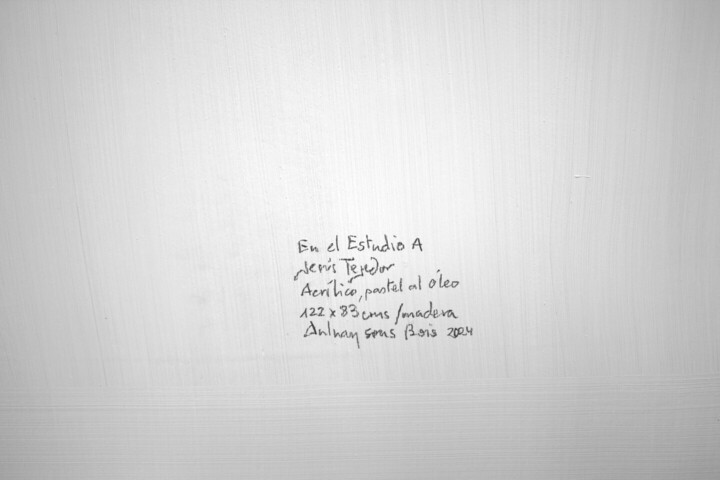 En el Estudio A
Jesús Tejedor
Acrílico, pastel al óleo
122 x 83 cms /madera
Aulnay sous Bois 2024